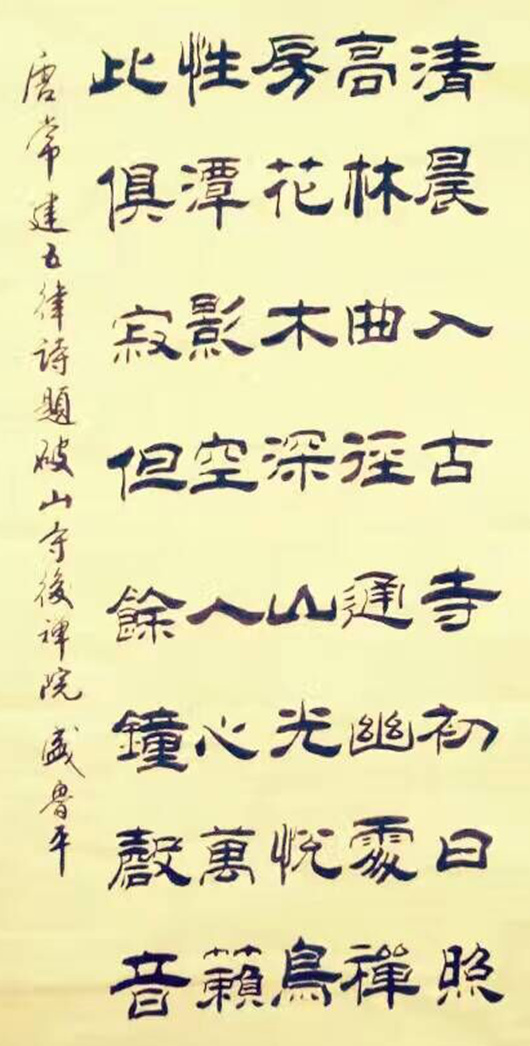 清晨入古寺初日照
高林曲徑通幽處禪
房花木深山光悅鳥
性潭影空人心萬籟
此俱寂但餘鐘磬音
唐常建五律詩題破山寺後禪院 盛魯平